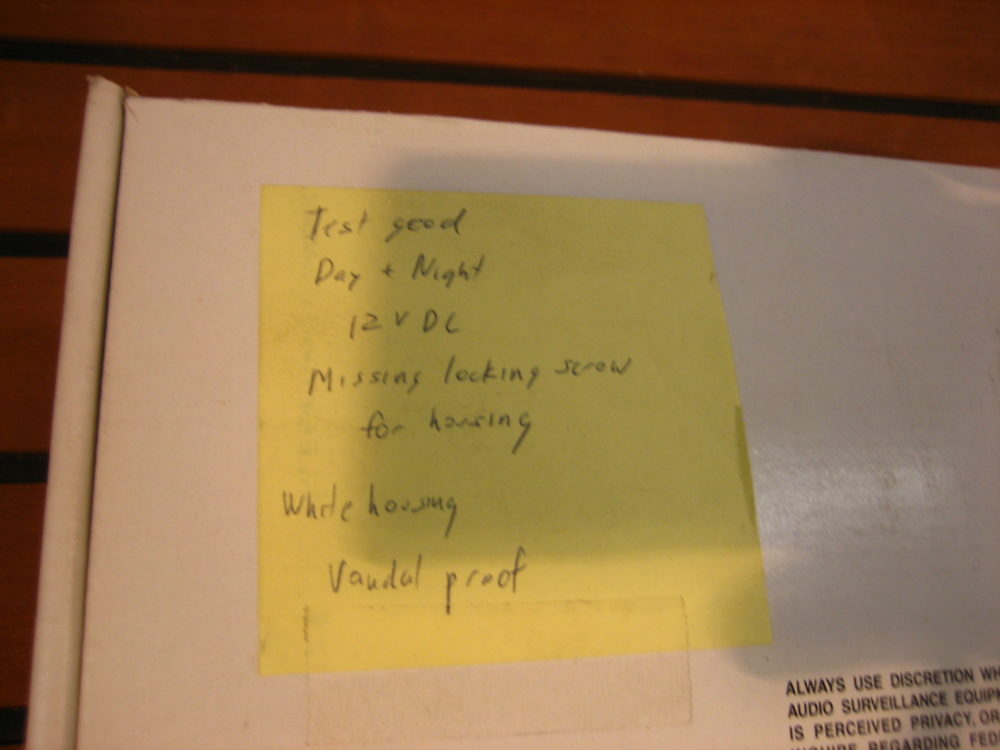 Test good
Day + Night
12 V DC
Missing locking screw
for housing
White housing
Vandal proof
ALWAYS USE DISCRETION WH
AUDIO SURVEILLANCE EQUIP
IS PERCEIVED PRIVACY, OR
REGARDING FED